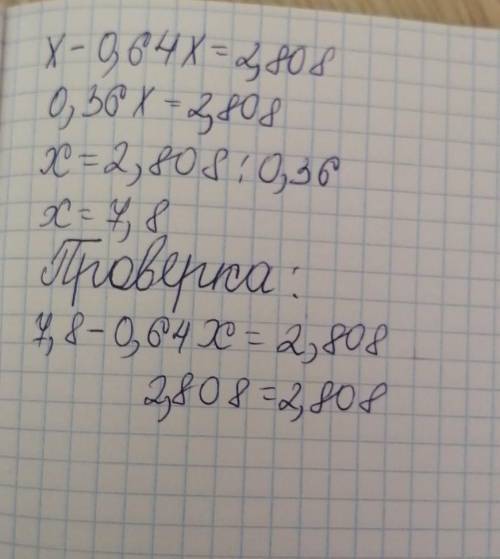 х - 0,64х = 2,808
0,36х = 2,808
х = 2,808 : 0,36
х = 7,8
Проверка:
7,8 - 0,64х = 2,808
2,808 = 2,808